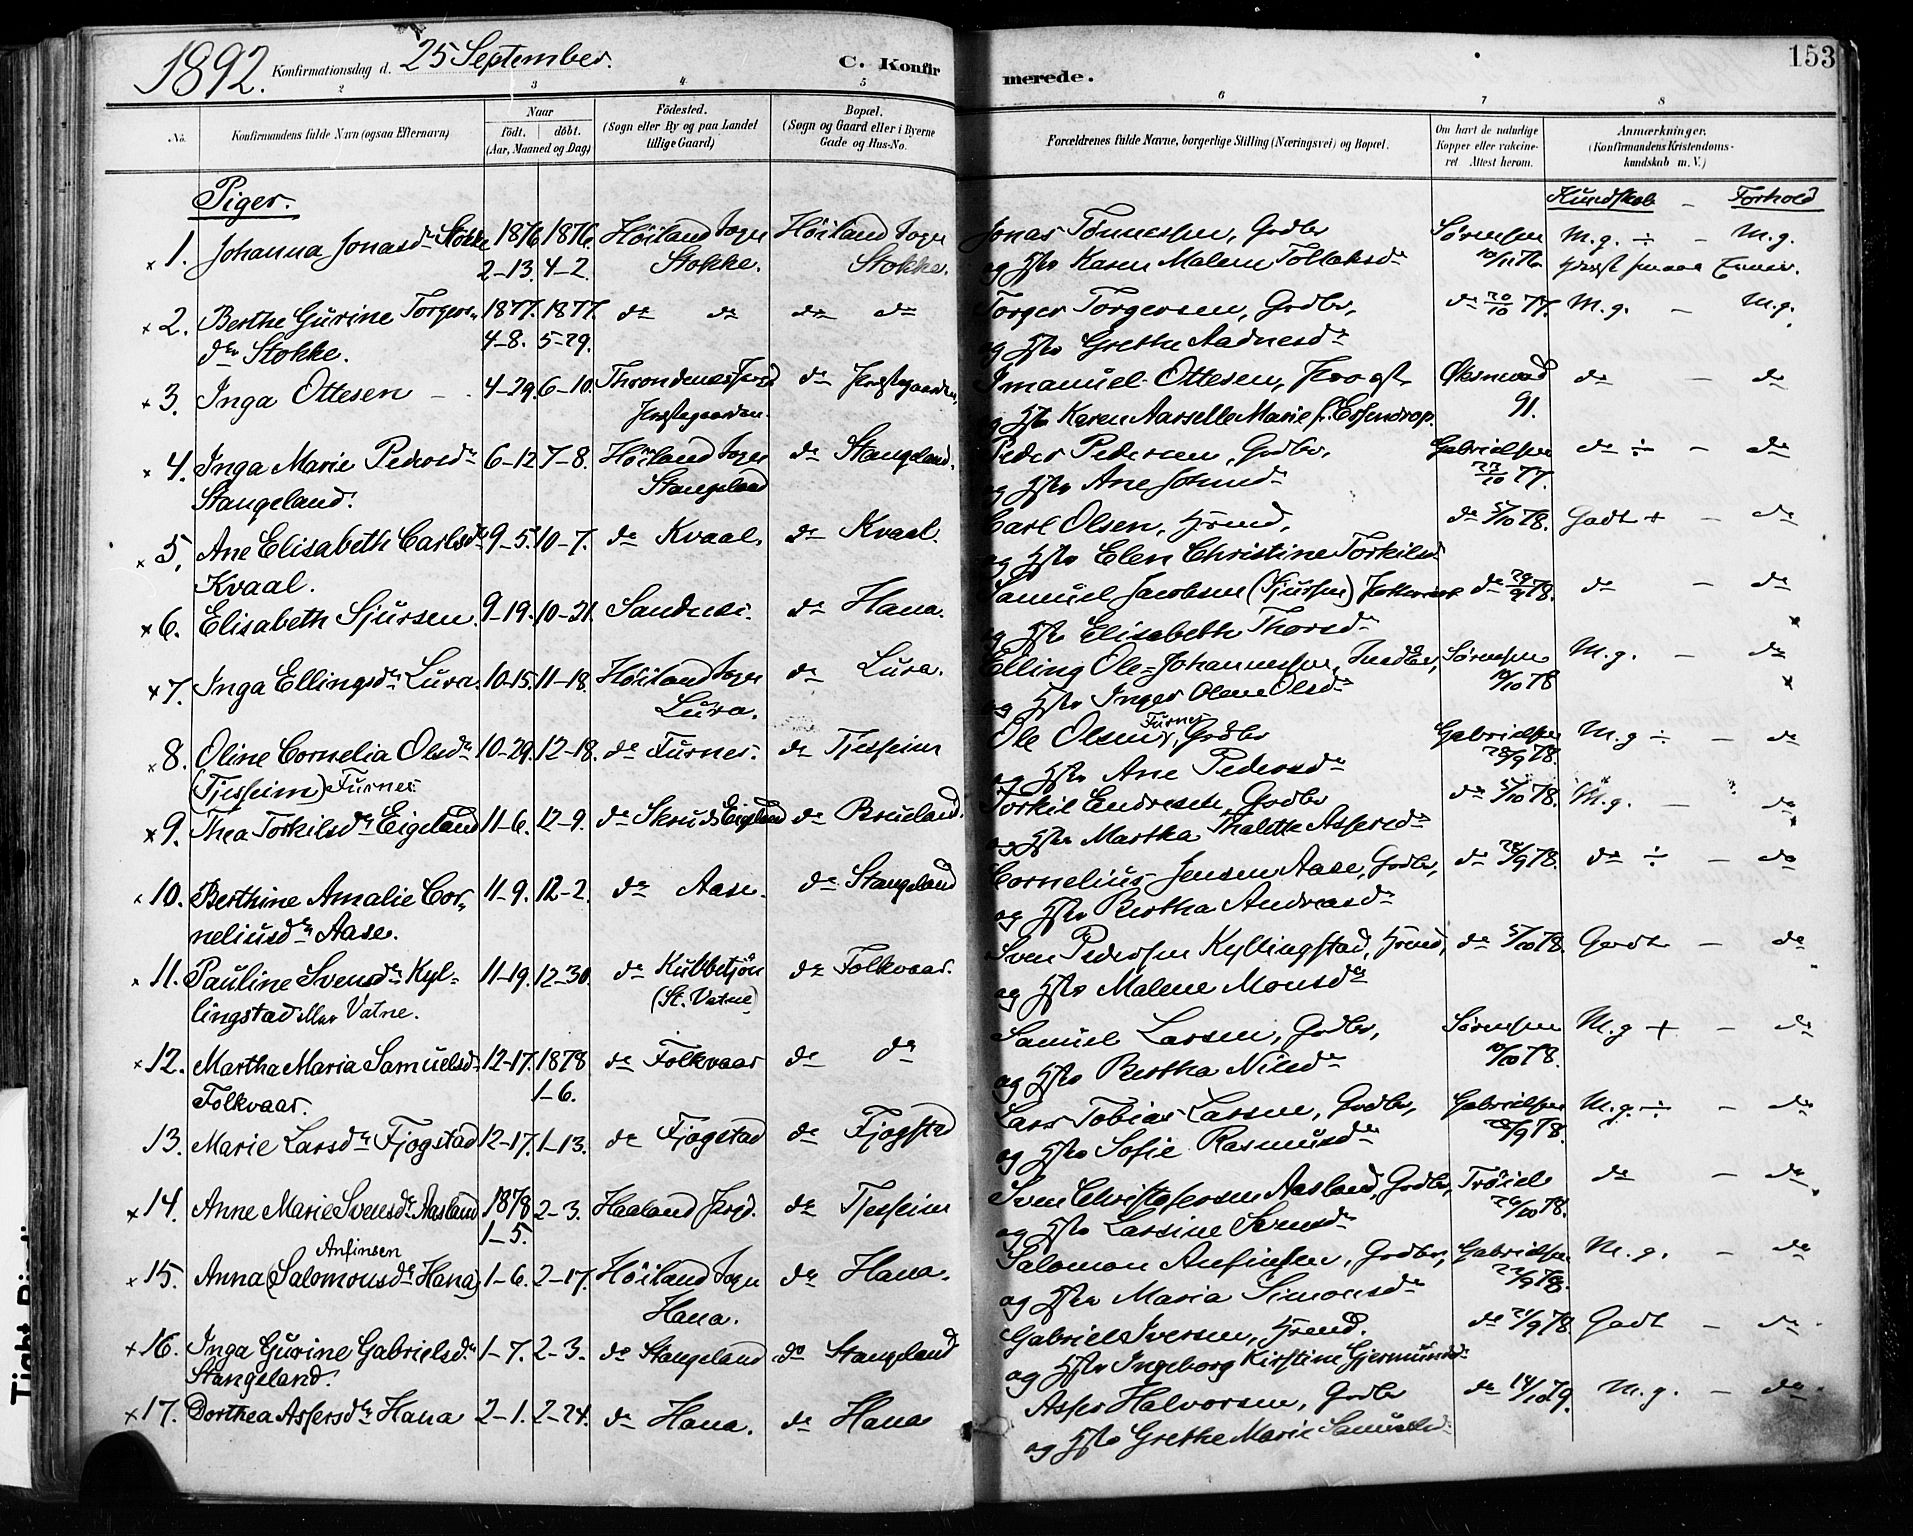 1892. Konfirmationsdag d. 25 September. C. Konfirmerede. 153
2 3 4 5 6 7 8
No. Konfirmandens fulde Navn (ogsaa Efternavn) Naar födt. döbt. (Aar, Maaned og Dag) Födested. (Sogn eller By og paa Landet tillige Gaard) Bopæl. (Sogn og Gaard eller i Byerne Gade og Hus-No. Forældrenes fulde Navne, borgerlige Stilling (Næringsvei) og Bopæl. Om havt de naturlige Kopper eller vakcineret Attest herom. Anmærkninger. (Konfirmandens Kristendomskundskab m. V.)
Piger. Kundskab – Forhold
× 1. Johanna Jonasdr Stokke 1876 1876. Höiland Sogn Höiland Sogn Jonas Tönnessen, Gdbr Sørensen M.g. ÷ – M.g.
2–13. 4–2. Stokke. Stokke. og Hstr Karen Malene Tollaksdr
× 2. Berthe Gurine Torgers- 1877. 1877. do do do do Torger Torgersen, Grdbr, do 20/10 77. M.g. – M.g.
dtr Stokke. 4–8. 5–29. og Hstr Grethe Aadnesdr
× 3. Inga Ottesen 4–29. 6–10. do Imanuel Ottesen, do – do
og Hstr Karen Marie f. Essendrop. 91.
× 4. Inga Marie Pedersdr 6–12. 7–8. Höiland Sogn do Stangeland. Peder Pedersen, Grdbr, Gabrielsen do ÷ – do
Stangeland. Stangeland og Hstr Ane 23/10 77.
× 5. Ane Elisabeth Carlsdr 9–5. 10–7. do Kvaal. do Kvaal. Carl Olsen, Hrmd, do 5/10 78. Godt + – do
Kvaal. og Hstr Elen Christine Torkilsd.
× 6. Elisabeth Sjursen. 9–19. 10–21. Sandnes. do Hana. Samuel Jacobsen (Sjursen) do 29/9 78. do – do
og Hstr Elisabeth Thorsdr
× 7. Inga Ellingsdr Lura. 10–15. 11–18. Höiland Sogn do Lura. Elling Ole-Johannessen, Sørensen M.g. – do
Lura. og Hstr Inger Olene Olsdr
× 8. Oline Cornelia Olsdr 10–29. 12–18. do Furnes. do Tjesseim Ole Olsen Furnes, Grdbr Gabrielsen M.g ÷ – do
(Tjesseim) Furnes og Hstr Ane Pedersdr 28/9 78.
× 9. Thea Torkilsdr Eigeland 11–6. 12–9. do Skruds Eigeland do Brueland. Torkil Endresen, Grdbr do 5/10 78. M.g. – do
og Hstr Martha Thalette Assersdr
× 10. Berthine Amalie Cor- 11–9. 12–2. do Aase. do Stangeland Cornelius Jensen Aase, Grdbr, do 28/9 78. do ÷ – do
neliusdr Aase. og Hstr Bertha Andreasdr
× 11. Pauline Svensdr Kyl- 11–19. 12–30. do Kubbetjön do Folkvaar. Sven Pedersen Kyllingstad, Hrmd, do 5/10 78. Godt – do
lingstad eller Vatne. (St. Vatne) og Hstr Malene Monsdr
× 12. Martha Maria Samuelsd- 12–17. 1878 do Folkvaar do do Samuel Larsen, Grdbr, Sørensen M.g + – do
Folkvaar. 1–6. og Hstr Bertha Nilsdr 10/10 78.
13. Marie Larsdr Fjogstad 12–17. 1–13. do Fjogstad do Fjogstad Lars Tobias Larsen, Grdbr, Gabrielsen M.g. ÷ – do
og Hstr Sofie Rasmusdr 28/9 78.
× 14. Anne Marie Svensdr Aasland 1878 2–3. Haaland do Tjesseim Sven Christofersen Aasland, Grdbr, do – do
1–5. og Hstr Larsine Svensdr 26/10 78.
Anfinsen
× 15. Anna (Salomonsdr Hana) 1–6. 2–17. Höiland Sogn do Hana. Salomon Anfinsen, Grdbr, Gabrielsen M.g. – do
Hana. og Hstr Maria Simonsdr
× 16. Inga Gurine Gabrielsdr 1–7. 2–3. do Stangeland do Stangeland Gabriel Iversen, Hrmd. do 21/9 78 Godt – do
Stangeland. og Hstr Ingeborg Kirstine Gjermundsd
× 17. Dorthea Assersdr Hana 2–1. 2–24. do Hana. do Hana Asser Halvorsen, Grdbr do 14/10 79. M.g. – do
og Hstr Grethe Marie Samuelsd.